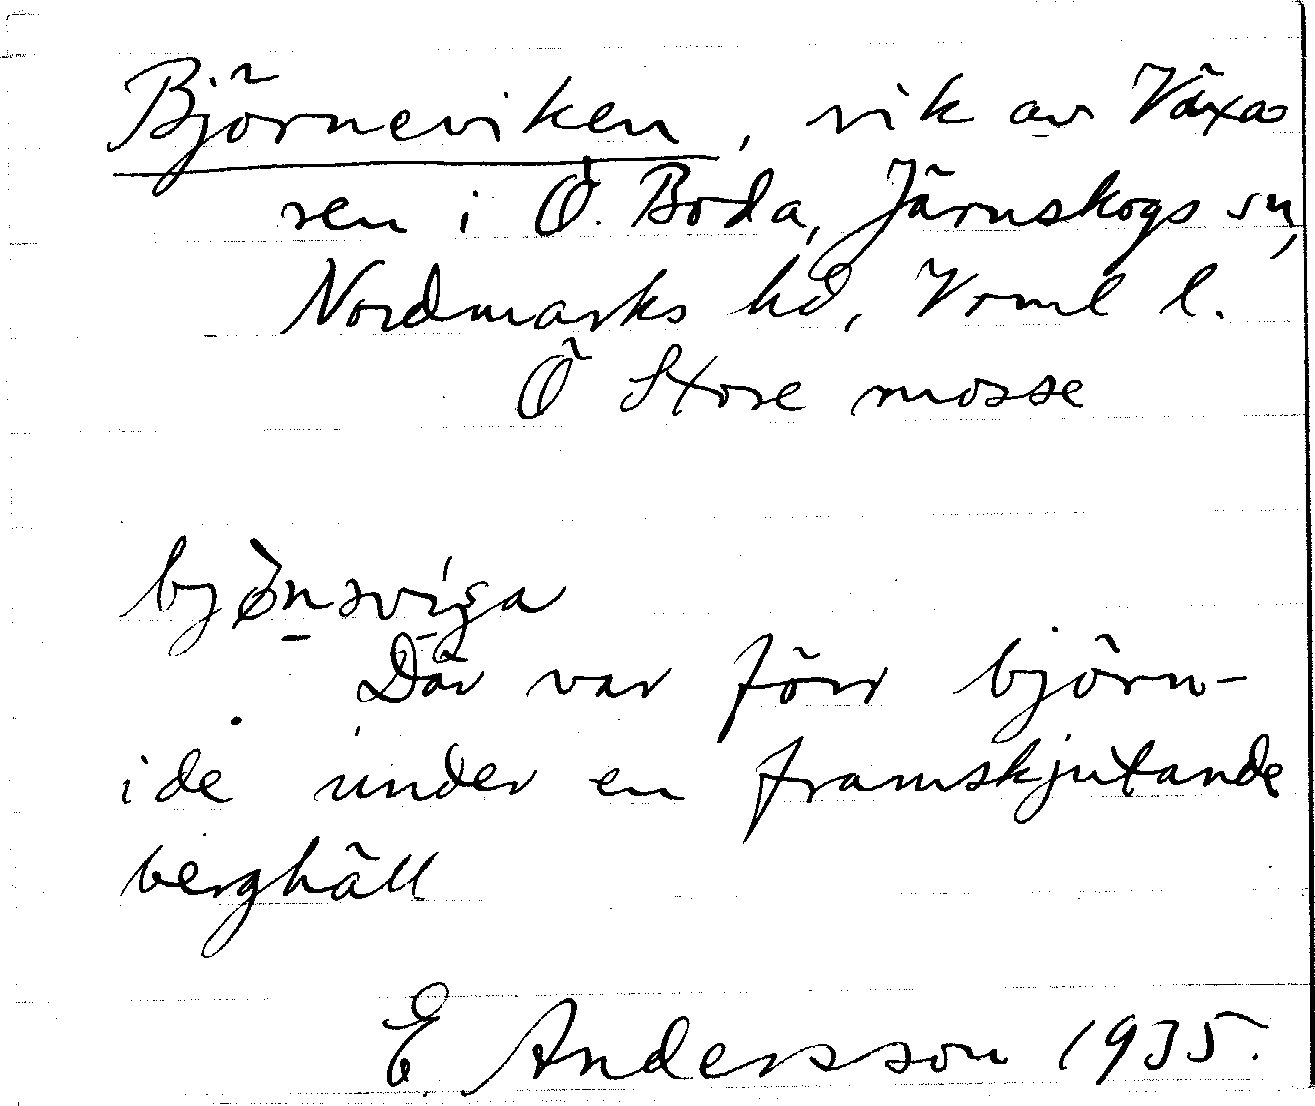 Björneviken, vik av Växas
sen i Ö. Boda, Järnskogs sn,
Nordmarks hd, Vrml l.
Ö Store mosse
bjönsviga
Där var förr björn-
ide under en framskjutande
berghäll
E Andersson 1935.